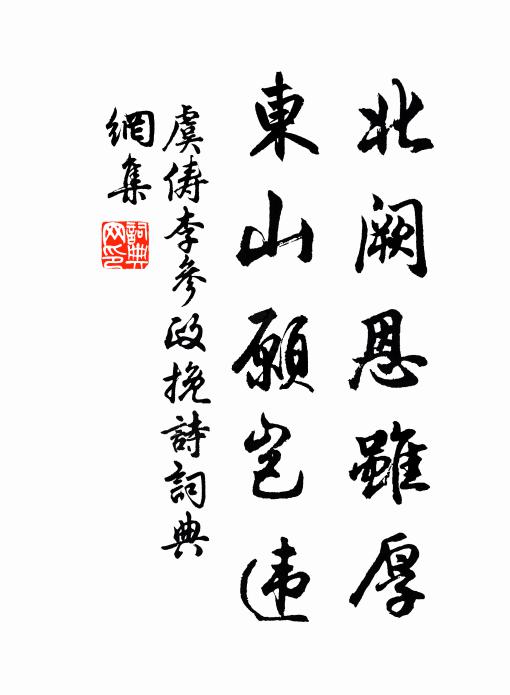 北闕恩雖厚
東山願豈违
虞儔李參政挽詩詞典
網集
詞典网印